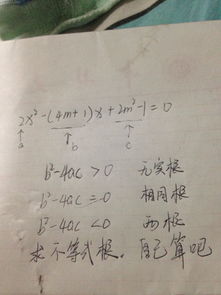 2x²-(4m+1)x+2m²-1=0
a b c
b²-4ac>0 无实根
b²-4ac=0 相同根
b²-4ac<0 两根
求不等式根. 自己算吧